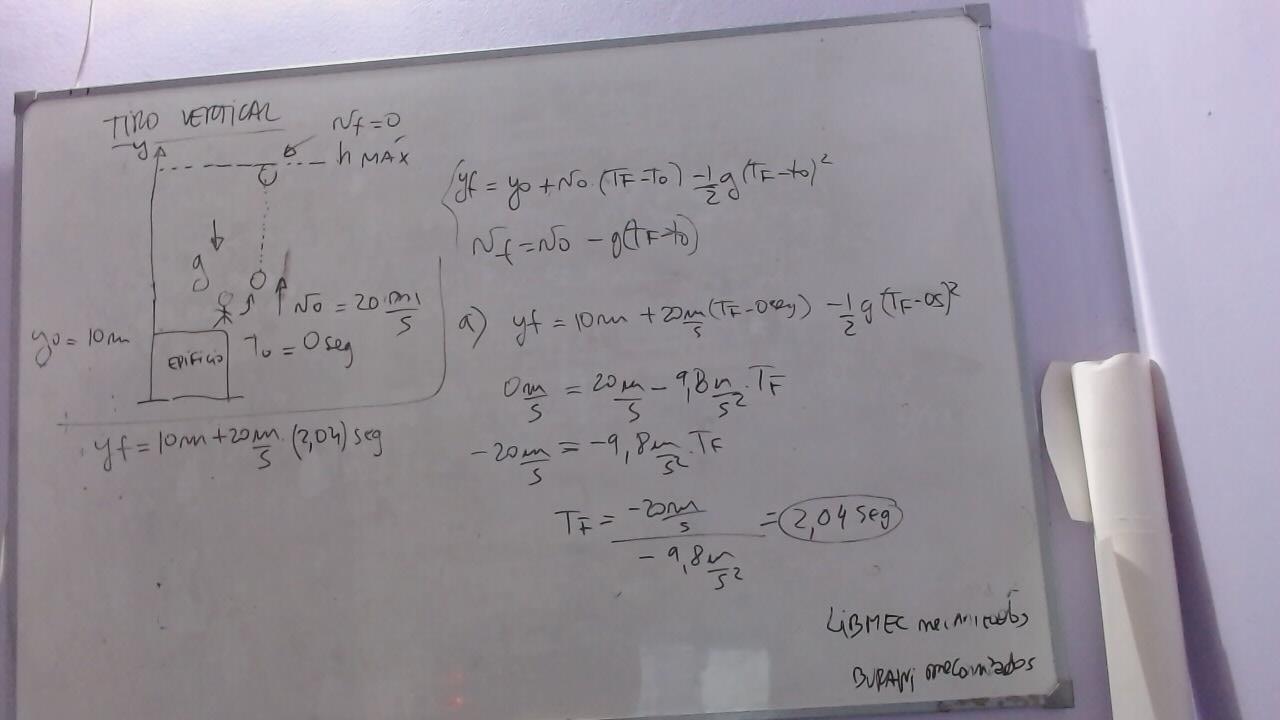 TIRO VERTICAL
y
Vf=0
h MÁX
g
V0 = 20 m/s
y0 = 10m
EDIFICIO
T0 = 0seg
yf = 10m + 20m/s . (2,04) seg
yf = y0 + V0 . (TF - T0) - 1/2 g (TF - t0)²
Vf = V0 - g(TF - t0)
a) yf = 10m + 20m/s (TF - 0seg) - 1/2 g (TF - 0s)²
0m/s = 20m/s - 9,8m/s² . TF
-20m/s = -9,8m/s² . TF
TF = -20m/s / -9,8m/s² = 2,04 seg
LiBMEC